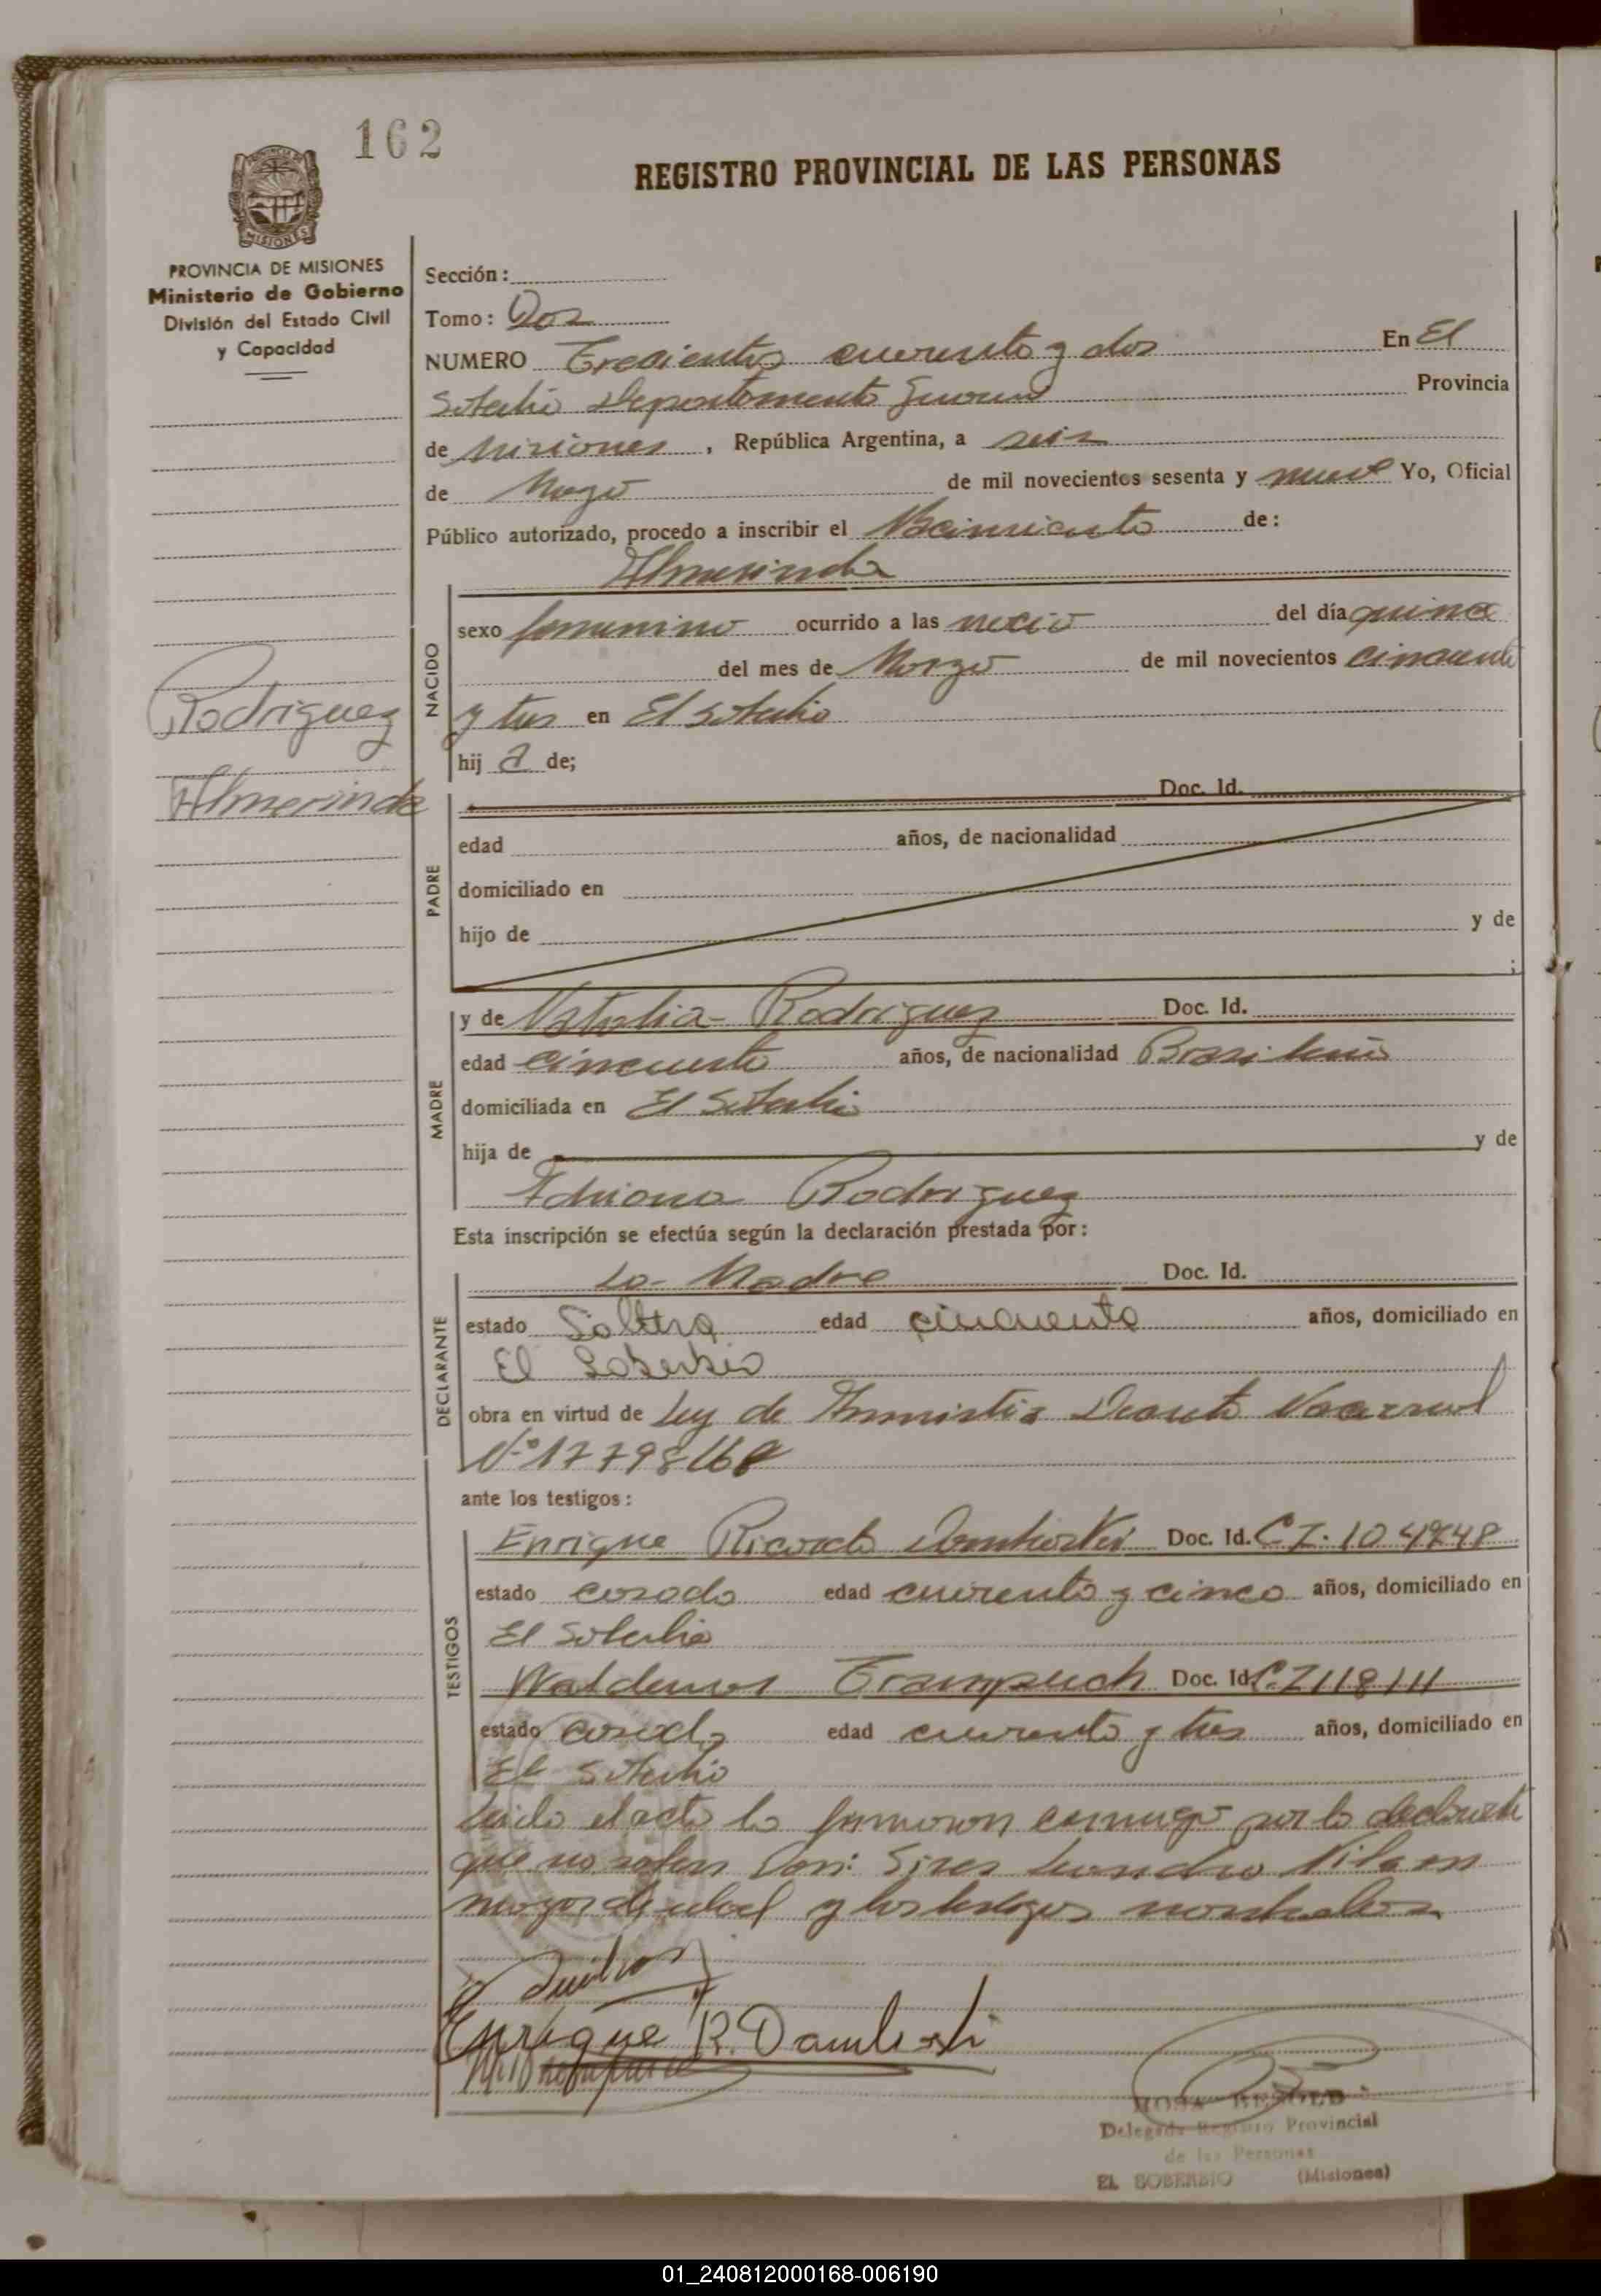 162
REGISTRO PROVINCIAL DE LAS PERSONAS
PROVINCIA DE MISIONES
MISIONES
PROVINCIA DE MISIONES
Ministerio de Gobierno
División del Estado Civil
y Capacidad
Sección:
Tomo: Dos
NUMERO Trecientos cuarenta y dos En El
Soberbio Departamento Guarani Provincia
de Misiones, República Argentina, a seis
de Mayo de mil novecientos sesenta y nueve Yo, Oficial
Público autorizado, procedo a inscribir el Nacimiento de:
Almerinda
NACIDO
sexo femenino ocurrido a las del día quince
del mes de Marzo de mil novecientos cincuenta
y tres en El Soberbio
hij a de;
Rodriguez
Almerinda
PADRE
Doc. Id.
edad años, de nacionalidad
domiciliado en
hijo de y de
;
MADRE
y de Natalia Rodriguez Doc. Id.
edad cincuenta años, de nacionalidad Brasileña
domiciliada en El Soberbio
hija de y de
Adriana Rodriguez
Esta inscripción se efectúa según la declaración prestada por:
DECLARANTE
La Madre Doc. Id.
estado Soltera edad cincuenta años, domiciliado en
El Soberbio
obra en virtud de Ley de Amnistia Decreto Nacional
Nº 17798/68
ante los testigos:
TESTIGOS
Enrique Ricardo Doc. Id. C.I. 104948
estado casado edad cuarenta y cinco años, domiciliado en
El Soberbio
Waldemar Trampuch Doc. Id C.I 118111
estado casado edad cuarenta y tres años, domiciliado en
El Soberbio
Leida el acta la firmaron conmigo por la declarante
que no sabe Don:
mayor de edad y los testigos nombrados
Enrique R.
Delegada Registro Provincial
de las Personas
EL SOBERBIO (Misiones)
01_240812000168-006190